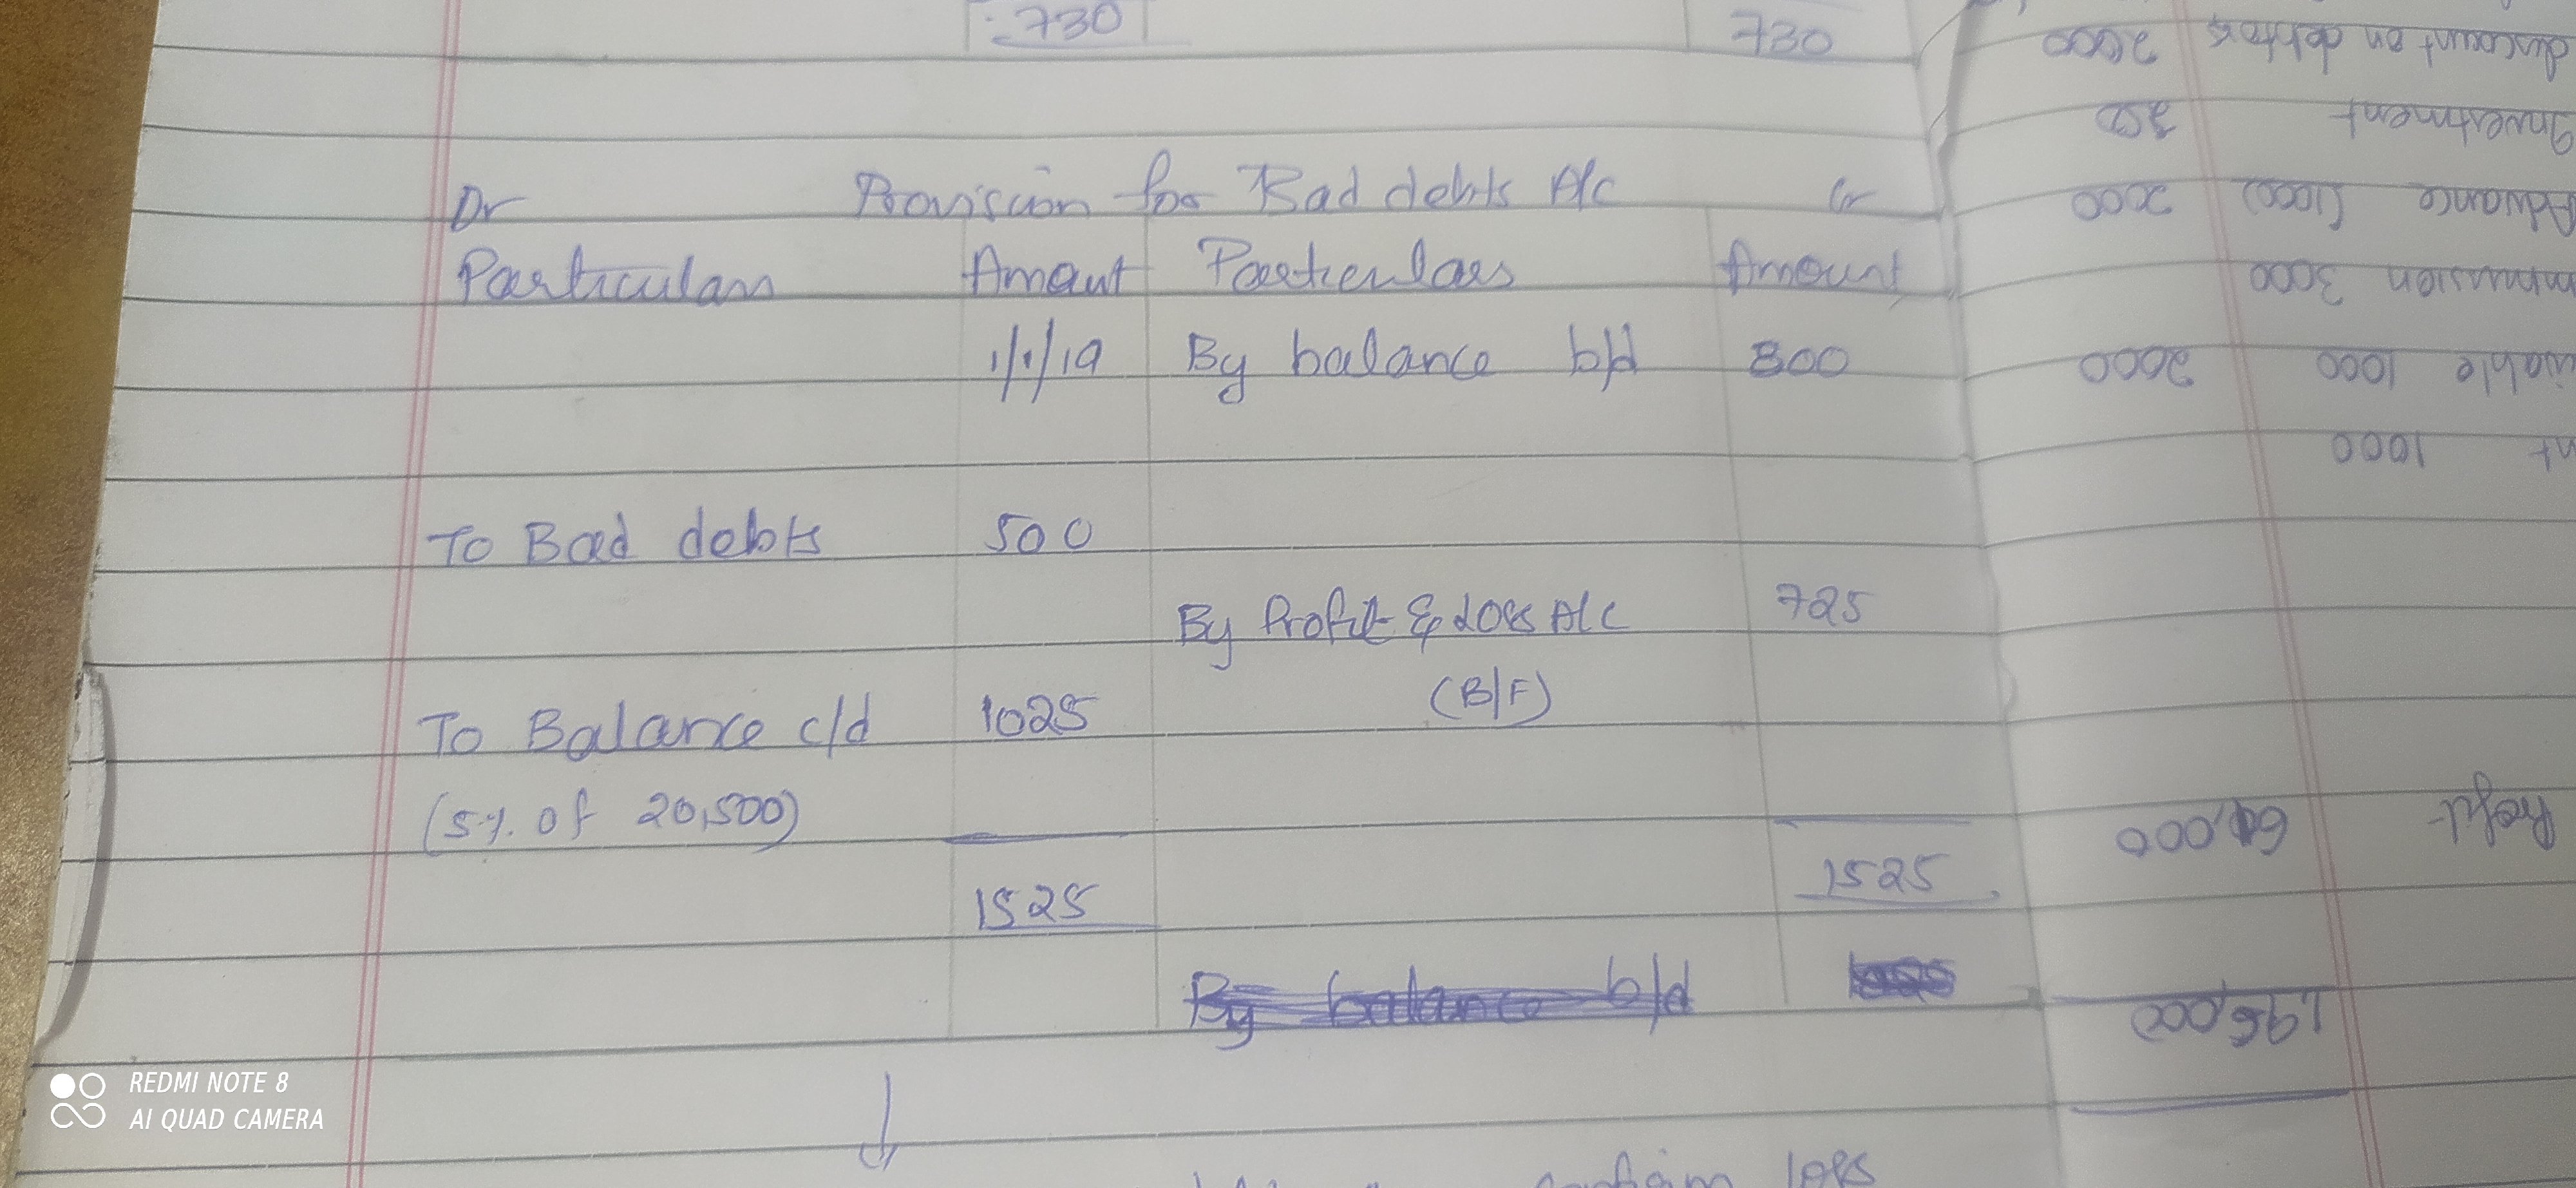 730 730
Dr Provision for Bad debts A/c Cr
Particulars Amount Particulars Amount
1/1/19 By balance b/d 800
To Bad debts 500
By Profit & Loss A/c 725
(B/F)
To Balance c/d 1025
(5% of 20,500)
1525 1525
By balance b/d
loss
discount on debtors 2000
Investment
Advance (1000) 2000
3000
1000 2000
1000
Profit
1,95,000
REDMI NOTE 8
AI QUAD CAMERA